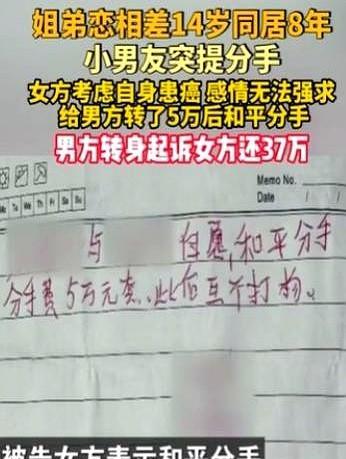 姐弟恋相差14岁同居8年
小男友突提分手
女方考虑自身患癌 感情无法强求
给男方转了5万后和平分手
男方转身起诉女方还37万
Memo No.
Mo Tu We Th Fr Sa Su
Date / /
与 自愿,和平分手
分手费5万元,此后互不打扰。
被告女方表示和平分手